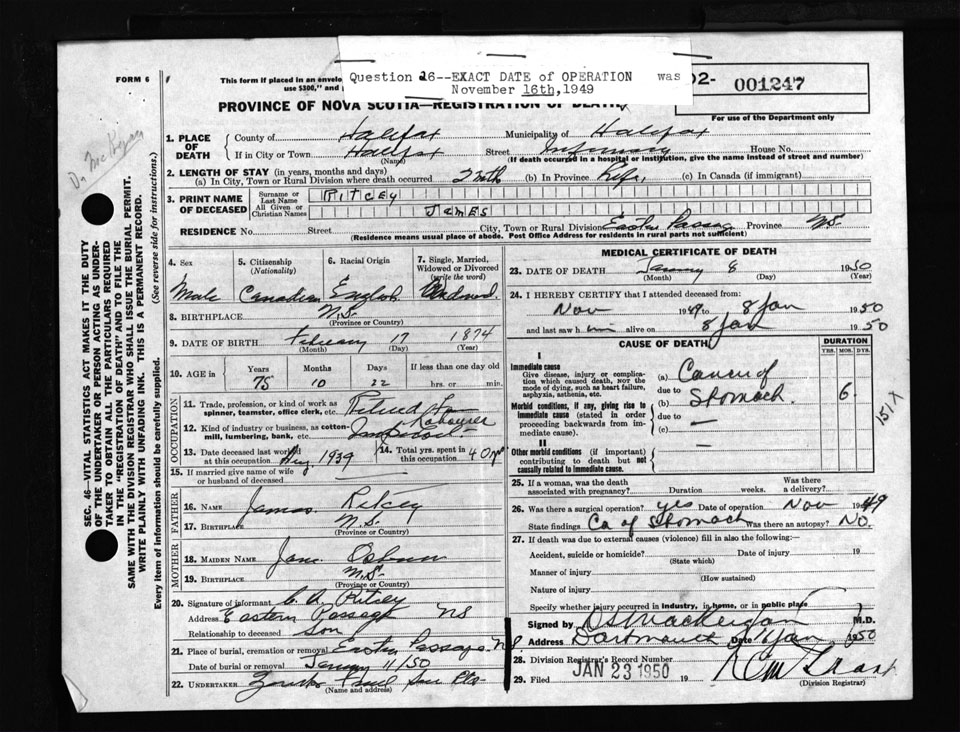 Question 26--EXACT DATE of OPERATION was
November 16th,1949
FORM 6
This form if placed in an envelo
use $300," and
02- 001247
For use of the Department only
PROVINCE OF NOVA SCOTIA—REGISTRATION OF DEATH
Dr MacKeigan
SEC. 46—VITAL STATISTICS ACT MAKES IT THE DUTY
OF THE UNDERTAKER OR PERSON ACTING AS UNDER-
TAKER TO OBTAIN ALL THE PARTICULARS REQUIRED
IN THE "REGISTRATION OF DEATH" AND TO FILE THE
SAME WITH THE DIVISION REGISTRAR WHO SHALL ISSUE THE BURIAL PERMIT.
WRITE PLAINLY WITH UNFADING INK. THIS IS A PERMANENT RECORD.
(See reverse side for instructions.)
Every item of information should be carefully supplied.
1. PLACE OF DEATH
County of Halifax Municipality of Halifax
If in City or Town Halifax Street Infirmary House No.
(Name) (If death occurred in a hospital or institution, give the name instead of street and number)
2. LENGTH OF STAY (in years, months and days)
(a) In City, Town or Rural Division where death occurred 2 mth (b) In Province Life (c) In Canada (if immigrant)
3. PRINT NAME OF DECEASED
Surname or Last Name RITCEY
All Given or Christian Names JAMES
RESIDENCE No. Street City, Town or Rural Division Eastern Passage Province NS
(Residence means usual place of abode. Post Office Address for residents in rural parts not sufficient)
4. Sex
Male
5. Citizenship
(Nationality)
Canadian
6. Racial Origin
English
7. Single, Married,
Widowed or Divorced
(write the word)
Widowed
8. BIRTHPLACE N.S.
(Province or Country)
9. DATE OF BIRTH February 17 1874
(Month) (Day) (Year)
10. AGE in Years Months Days If less than one day old
75 10 22 hrs. or min.
OCCUPATION
11. Trade, profession, or kind of work as
spinner, teamster, office clerk, etc. Retired
12. Kind of industry or business, as cotton-
mill, lumbering, bank, etc. Labourer
Imperoil
13. Date deceased last worked
at this occupation Aug 1939
14. Total yrs. spent in
this occupation 40 yr
15. If married give name of wife
or husband of deceased
FATHER
16. NAME James Ritcey
17. BIRTHPLACE N.S.
(Province or Country)
MOTHER
18. MAIDEN NAME Jane
19. BIRTHPLACE N.S.
(Province or Country)
20. Signature of informant C. A. Ritcey
Address Eastern Passage NS
Relationship to deceased Son
21. Place of burial, cremation or removal Eastern Passage NS
Date of burial or removal January 11/50
22. UNDERTAKER
(Name and address)
MEDICAL CERTIFICATE OF DEATH
23. DATE OF DEATH January 8 1950
(Month) (Day) (Year)
24. I HEREBY CERTIFY that I attended deceased from:
Nov 1949 to 8 Jan 1950
and last saw him alive on 8 Jan 1950
CAUSE OF DEATH
DURATION
YRS. MOS. DYS.
I
Immediate cause
Give disease, injury or complica-
tion which caused death, not the
mode of dying, such as heart failure,
asphyxia, asthenia, etc.
(a) Cancer of
due to
(b) Stomach 6
Morbid conditions, if any, giving rise to
immediate cause (stated in order
proceeding backwards from im-
mediate cause).
due to
(c)
151X
II
Other morbid conditions (if important)
contributing to death but not
causally related to immediate cause.
25. If a woman, was the death
associated with pregnancy? Duration weeks. Was there
a delivery?
26. Was there a surgical operation? yes Date of operation Nov 1949
State findings Ca of Stomach Was there an autopsy? No.
27. If death was due to external causes (violence) fill in also the following:—
Accident, suicide or homicide? Date of injury 19
(State which)
Manner of injury
(How sustained)
Nature of injury
Specify whether injury occurred in industry, in home, or in public place
Signed by DS MacKeigan M.D.
Address Dartmouth Date Jan 1950
28. Division Registrar's Record Number
29. Filed JAN 23 1950 19
(Division Registrar)